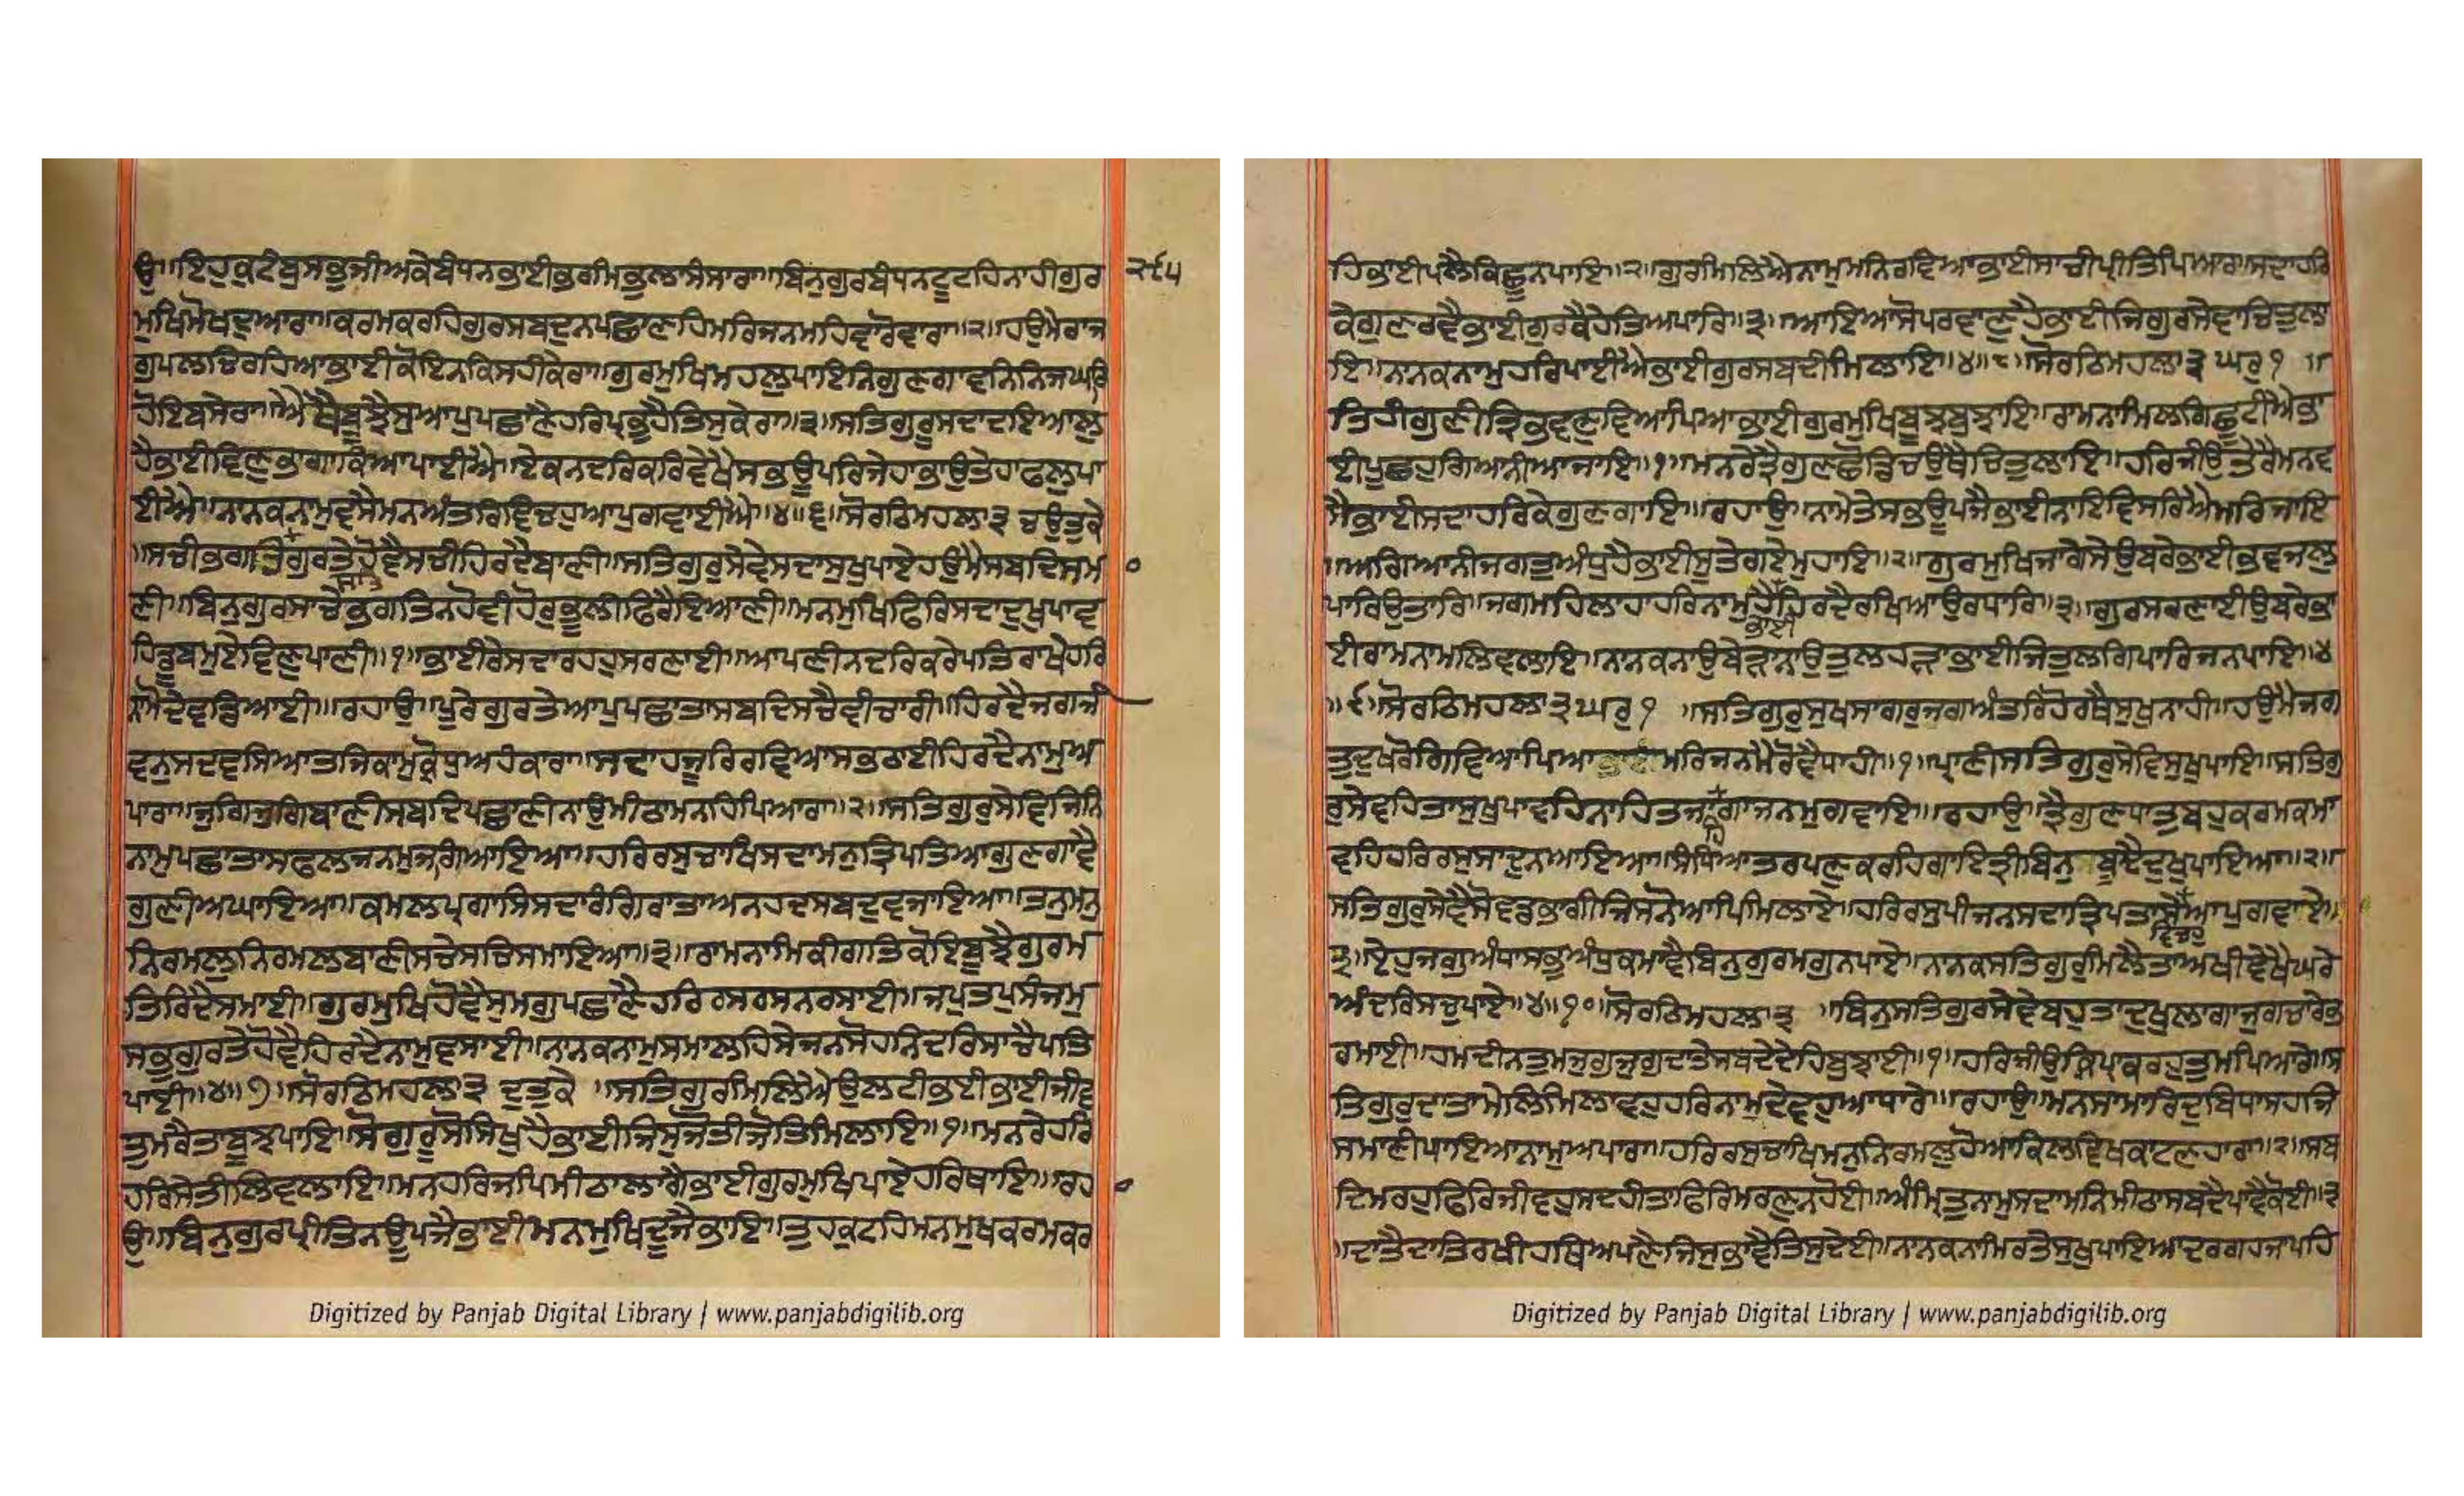 ਉ॥ਇਹੁਕੁਟੰਬੁਸਭੁਜੀਅਕੇਬੰਧਨਭਾਈਭਰਮਿਭੁਲਾਸੰਸਾਰਾ॥ਬਿਨੁਗੁਰਬੰਧਨਟੂਟਹਿਨਾਹੀਗੁਰ ੨੯੫
ਮੁਖਿਮੋਖਦੁਆਰਾ॥ਕਰਮਕਰਹਿਗੁਰਸਬਦੁਨਪਛਾਣਹਿਮਰਿਜਨਮਹਿਵਾਰੋਵਾਰਾ॥੨॥ਹਉਮੇਰਾਜ
ਗੁਪਲਚਿਰਹਿਆਭਾਈਕੋਇਨਕਿਸਹੀਕੇਰਾ॥ਗੁਰਮੁਖਿਮਹਲੁਪਾਇਨਿਗੁਣਗਾਵਨਿਨਿਜਘਰਿ
ਹੋਇਬਸੇਰਾ॥ਐਥੈਬੂਝੈਸੁਆਪੁਪਛਾਣੈਹਰਿਪ੍ਰਭੁਹੈਤਿਸੁਕੇਰਾ॥੩॥ਸਤਿਗੁਰੂਸਦਾਦਇਆਲੁ
ਹੈਭਾਈਵਿਣੁਭਾਗਾਕਿਆਪਾਈਐ॥ਏਕਨਦਰਿਕਰਿਵੇਖੈਸਭਊਪਰਿਜੇਹਾਭਾਉਤੇਹਾਫਲੁਪਾ
ਈਐ॥ਨਾਨਕਨਾਮੁਵਸੈਮਨਅੰਤਰਿਵਿਚਹੁਆਪੁਗਵਾਈਐ॥੪॥੬॥ਸੋਰਠਿਮਹਲਾ੩ ਚਉਤੁਕੇ
॥ਸਚੀਭਗਤਿਗੁਰਤੇਹੋਵੈਸਚੀਹਿਰਦੈਬਾਣੀ॥ਸਤਿਗੁਰੁਸੇਵੇਸਦਾਸੁਖੁਪਾਏਹਉਮੈਸਬਦਿਸਮਾ
ਣੀ॥ਬਿਨੁਗੁਰਸਾਚੇਭਗਤਿਨਹੋਵੀਹੋਰਭੂਲੀਫਿਰੈਇਆਣੀ॥ਮਨਮੁਖਿਫਿਰਿਸਦਾਦੁਖੁਪਾਵ
ਹਿਡੂਬਮੁਏਵਿਣੁਪਾਣੀ॥੧॥ਭਾਈਰੇਸਦਾਰਹਹੁਸਰਣਾਈ॥ਆਪਣੀਨਦਰਿਕਰੇਪਤਿਰਾਖੈਹਰਿ
ਨਾਮੋਦੇਵਡਿਆਈ॥ਰਹਾਉ॥ਪੂਰੇਗੁਰਤੇਆਪੁਪਛਾਤਾਸਬਦਿਸਚੈਵੀਚਾਰਾ॥ਹਿਰਦੈਜਗਜੀ
ਵਨੁਸਦਵਸਿਆਤਜਿਕਾਮੁਕ੍ਰੋਧੁਅਹੰਕਾਰਾ॥ਸਦਾਹਜੂਰਿਰਵਿਆਸਭਠਾਈਹਿਰਦੈਨਾਮੁਅ
ਪਾਰਾ॥ਜੁਗਿਜੁਗਿਬਾਣੀਸਬਦਿਪਛਾਣੀਨਾਉਮੀਠਾਮਨਹਿਪਿਆਰਾ॥੨॥ਸਤਿਗੁਰੁਸੇਵਿਜਿਨਿ
ਨਾਮੁਪਛਾਤਾਸਫਲਜਨਮੁਜਗਿਆਇਆ॥ਹਰਿਰਸੁਚਾਖਿਸਦਾਮਨੁਤ੍ਰਿਪਤਿਆਗੁਣਗਾਵੈ
ਗੁਣੀਅਘਾਇਆ॥ਕਮਲਪ੍ਰਗਾਸਿਸਦਾਰੰਗਿਰਾਤਾਅਨਹਦਸਬਦੁਵਜਾਇਆ॥ਤਨੁਮਨੁ
ਨਿਰਮਲੁਨਿਰਮਲਬਾਣੀਸਚੇਸਚਿਸਮਾਇਆ॥੩॥ਰਾਮਨਾਮਿਕੀਗਤਿਕੋਇਬੂਝੈਗੁਰਮ
ਤਿਰਿਦੈਸਮਾਈ॥ਗੁਰਮੁਖਿਹੋਵੈਸੁਮਗੁਪਛਾਣੈਹਰਿਰਸਰਸਨਰਸਾਈ॥ਜਪੁਤਪੁਸੰਜਮੁ
ਸਭੁਗੁਰਤੇਹੋਵੈਹਿਰਦੈਨਾਮੁਵਸਾਈ॥ਨਾਨਕਨਾਮੁਸਮਾਲਹਿਸੇਜਨਸੋਹਨਿਦਰਿਸਾਚੈਪਤਿ
ਪਾਈ॥੪॥੭॥ਸੋਰਠਿਮਹਲਾ੩ ਦੁਤੁਕੇ ॥ਸਤਿਗੁਰਮਿਲਿਐਉਲਟੀਭਈਭਾਈਜੀਵ
ਤੁਮਰੈਤਾਬੂਝਪਾਇ॥ਸੋਗੁਰੂਸੋਸਿਖੁਹੈਭਾਈਜਿਸੁਜੋਤੀਜੋਤਿਮਿਲਾਇ॥੧॥ਮਨਰੇਹਰਿ
ਹਰਿਸੇਤੀਲਿਵਲਾਇ॥ਮਨਹਰਿਜਪਿਮੀਠਾਲਾਗੈਭਾਈਗੁਰਮੁਖਿਪਾਏਹਰਿਥਾਇ॥ਰਹਾ
ਉ॥ਬਿਨੁਗੁਰਪ੍ਰੀਤਿਨਊਪਜੈਭਾਈਮਨਮੁਖਿਦੂਜੈਭਾਇ॥ਤੁਹਕੁਟਹਿਮਨਮੁਖਕਰਮਕਰ
ਹਿਭਾਈਪਲੈਕਿਛੂਨਪਾਇ॥੨॥ਗੁਰਮਿਲਿਐਨਾਮੁਮਨਿਰਵਿਆਭਾਈਸਾਚੀਪ੍ਰੀਤਿਪਿਆਰਾ॥ਸਦਾਹਰਿ
ਕੇਗੁਣਰਵੈਭਾਈਗੁਰਕੈਹੇਤਿਅਪਾਰਿ॥੩॥ਆਇਆਸੋਪਰਵਾਣੁਹੈਭਾਈਜਿਗੁਰਸੇਵਾਚਿਤੁਲਾ
ਇ॥ਨਾਨਕਨਾਮੁਹਰਿਪਾਈਐਭਾਈਗੁਰਸਬਦੀਮਿਲਾਇ॥੪॥੮॥ਸੋਰਠਿਮਹਲਾ੩ ਘਰੁ੧ ॥
ਤਿਹੀਗੁਣੀਤ੍ਰਿਭਵਣੁਵਿਆਪਿਆਭਾਈਗੁਰਮੁਖਿਬੂਝਬੁਝਾਇ॥ਰਾਮਨਾਮਿਲਗਿਛੂਟੀਐਭਾ
ਈਪੂਛਹੁਗਿਆਨੀਆਜਾਇ॥੧॥ਮਨਰੇਤ੍ਰੈਗੁਣਛੋਡਿਚਉਥੈਚਿਤੁਲਾਇ॥ਹਰਿਜੀਉਤੇਰੈਮਨਵ
ਸੈਭਾਈਸਦਾਹਰਿਕੇਗੁਣਗਾਇ॥ਰਹਾਉ॥ਨਾਮੈਤੇਸਭਊਪਜੈਭਾਈਨਾਇਵਿਸਰਿਐਮਰਿਜਾਇ
॥ਅਗਿਆਨੀਜਗਤੁਅੰਧੁਹੈਭਾਈਸੂਤੇਗਏਮੁਹਾਇ॥੨॥ਗੁਰਮੁਖਿਜਾਗੇਸੇਉਬਰੇਭਾਈਭਵਜਲੁ
ਪਾਰਿਉਤਾਰਿ॥ਜਗਮਹਿਲਾਹਾਹਰਿਨਾਮੁਹੈਭਾਈਹਿਰਦੈਰਖਿਆਉਰਧਾਰਿ॥੩॥ਗੁਰਸਰਣਾਈਉਬਰੇਭਾ
ਈਰਾਮਨਾਮਲਿਵਲਾਇ॥ਨਾਨਕਨਾਉਬੇੜਾਨਾਉਤੁਲਹੜਾਭਾਈਜਿਤੁਲਗਿਪਾਰਿਜਨਪਾਇ॥੪
॥੯॥ਸੋਰਠਿਮਹਲਾ੩ਘਰੁ੧ ॥ਸਤਿਗੁਰੁਸੁਖਸਾਗਰੁਜਗਅੰਤਰਿਹੋਰਥੈਸੁਖੁਨਾਹੀ॥ਹਉਮੈਜਗ
ਤੁਦੁਖਰੋਗਿਵਿਆਪਿਆਮਰਿਜਨਮੈਰੋਵੈਧਾਹੀ॥੧॥ਪ੍ਰਾਣੀਸਤਿਗੁਰੁਸੇਵਿਸੁਖੁਪਾਇ॥ਸਤਿਗੁ
ਰੁਸੇਵਹਿਤਾਸੁਖੁਪਾਵਹਿਨਾਹਿਤਜਾਹਿਗਾਜਨਮੁਗਵਾਇ॥ਰਹਾਉ॥ਤ੍ਰੈਗੁਣਧਾਤੁਬਹੁਕਰਮਕਮਾ
ਵਹਿਹਰਿਰਸੁਸਾਦੁਨਆਇਆ॥ਸੰਧਿਆਤਰਪਣੁਕਰਹਿਗਾਇਤ੍ਰੀਬਿਨੁ ਬੂਝੇਦੁਖੁਪਾਇਆ॥੨॥
ਸਤਿਗੁਰੁਸੇਵੈਸੋਵਡਭਾਗੀਜਿਸਨੋਆਪਿਮਿਲਾਏ॥ਹਰਿਰਸੁਪੀਜਨਸਦਾਤ੍ਰਿਪਤਾਸੇਵਿਚਹੁਆਪੁਗਵਾਏ॥
੩॥ਇਹੁਜਗੁਅੰਧਾਸਭੁਅੰਧੁਕਮਾਵੈਬਿਨੁਗੁਰਮਗੁਨਪਾਏ॥ਨਾਨਕਸਤਿਗੁਰੁਮਿਲੈਤਾਅਖੀਵੇਖੈਘਰੈ
ਅੰਦਰਿਸਚੁਪਾਏ॥੪॥੧੦॥ਸੋਰਠਿਮਹਲਾ੩ ॥ਬਿਨੁਸਤਿਗੁਰਸੇਵੇਬਹੁਤਾਦੁਖੁਲਾਗਾਜੁਗਚਾਰੇਭ
ਰਮਾਈ॥ਹਮਦੀਨਤੁਮਜੁਗੁਜੁਗੁਦਾਤੇਸਬਦੇਦੇਹਿਬੁਝਾਈ॥੧॥ਹਰਿਜੀਉਕ੍ਰਿਪਾਕਰਹੁਤੁਮਪਿਆਰੇ॥ਸ
ਤਿਗੁਰੁਦਾਤਾਮੇਲਿਮਿਲਾਵਹੁਹਰਿਨਾਮੁਦੇਵਹੁਆਧਾਰੇ॥ਰਹਾਉ॥ਮਨਸਾਮਾਰਿਦੁਬਿਧਾਸਹਜਿ
ਸਮਾਣੀਪਾਇਆਨਾਮੁਅਪਾਰਾ॥ਹਰਿਰਸੁਚਾਖਿਮਨੁਨਿਰਮਲੁਹੋਆਕਿਲਵਿਖਕਾਟਣਹਾਰਾ॥੨॥ਸਬ
ਦਿਮਰਹੁਫਿਰਿਜੀਵਹੁਸਦਹੀਤਾਫਿਰਿਮਰਣੁਨਹੋਈ॥ਅੰਮ੍ਰਿਤੁਨਾਮੁਸਦਾਮਨਿਮੀਠਾਸਬਦੇਪਾਵੈਕੋਈ॥੩
॥ਦਾਤੈਦਾਤਿਰਖੀਹਥਿਅਪਣੈਜਿਸੁਭਾਵੈਤਿਸੁਦੇਈ॥ਨਾਨਕਨਾਮਿਰਤੇਸੁਖੁਪਾਇਆਦਰਗਹਜਾਪਹਿ
Digitized by Panjab Digital Library | www.panjabdigilib.org
Digitized by Panjab Digital Library | www.panjabdigilib.org